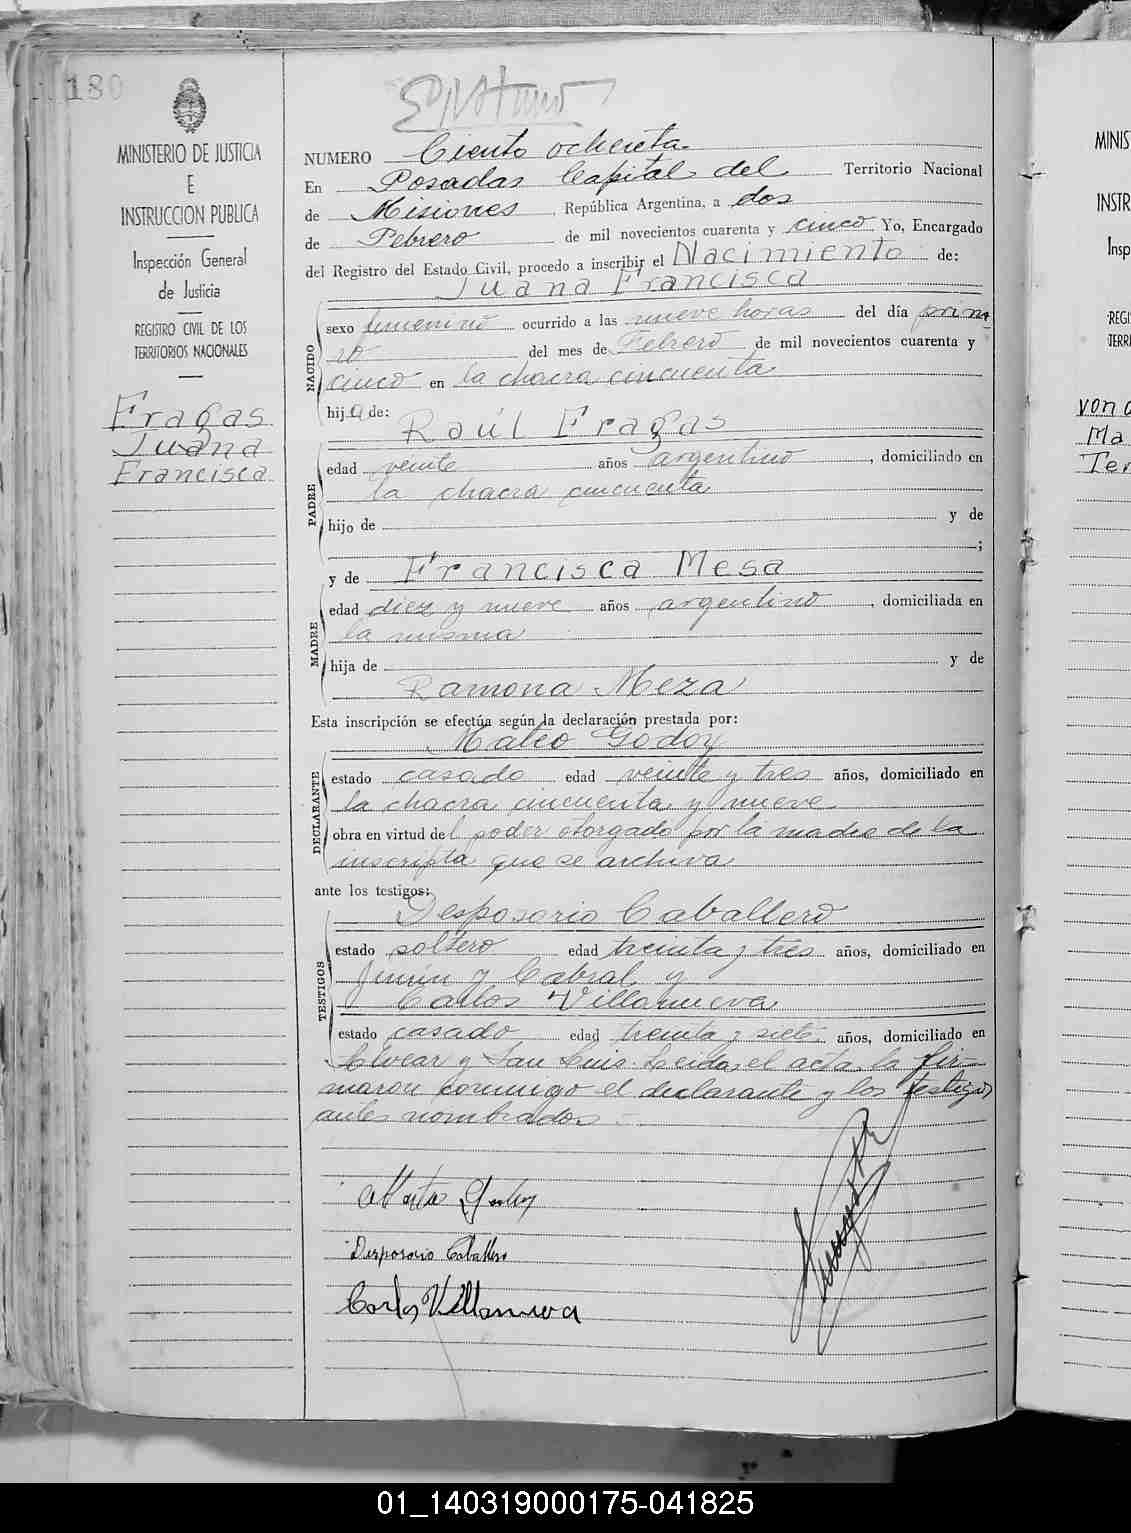 180
MINISTERIO DE JUSTICIA
E
INSTRUCCION PUBLICA
Inspección General
de Justicia
REGISTRO CIVIL DE LOS
TERRITORIOS NACIONALES
Fragas
Juana
Francisca
NUMERO Ciento ochenta
En Posadas Capital del Territorio Nacional
de Misiones, República Argentina, a dos
de Febrero de mil novecientos cuarenta y cinco Yo, Encargado
del Registro del Estado Civil, procedo a inscribir el Nacimiento de:
Juana Francisca
NACIDO
sexo femenino ocurrido a las nueve horas del día prime
ro del mes de Febrero de mil novecientos cuarenta y
cinco en la chacra cincuenta
hija de:
Raúl Fragas
PADRE
edad veinte años argentino, domiciliado en
la chacra cincuenta
hijo de y de
;
y de Francisca Mesa
MADRE
edad diez y nueve años argentino, domiciliada en
la misma
hija de y de
Ramona Meza
Esta inscripción se efectúa según la declaración prestada por:
Mateo Godoy
DECLARANTE
estado casado edad veinte y tres años, domiciliado en
la chacra cincuenta y nueve
obra en virtud del poder otorgado por la madre de la
inscripta que se archiva
ante los testigos:
Desposorio Caballero
TESTIGOS
estado soltero edad treinta y tres años, domiciliado en
Junín y Cabral y
Carlos Villanueva
estado casado edad treinta y siete años, domiciliado en
Alvear y San Luis. Leida el acta, la fir-
maron conmigo el declarante y los testigos
antes nombrados.
Desposorio Caballero
Carlos Villanueva
MINIS
INSTR
Insp
REGI
TERR
von
Ma
Ter
01_140319000175-041825